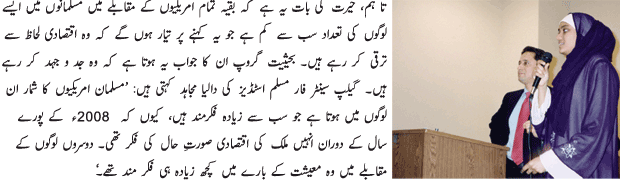 تا ہم، حیرت کی بات یہ ہے کہ بقیہ تمام امریکیوں کے مقابلے میں مسلمانوں میں ایسے
لوگوں کی تعداد سب سے کم ہے جو یہ کہنے پر تیار ہوں گے کہ وہ اقتصادی لحاظ سے
ترقی کر رہے ہیں۔ بحیثیت گروپ ان کا جواب یہ ہوتا ہے کہ وہ جد و جہد کر رہے
ہیں۔ گیلپ سینٹر فار مسلم اسٹڈیز کی دالیا مجاہد کہتی ہیں: ’مسلمان امریکیوں کا شمار ان
لوگوں میں ہوتا ہے جو سب سے زیادہ فکرمند ہیں، کیوں کہ 2008ء کے پورے
سال کے دوران انہیں ملک کی اقتصادی صورتِ حال کی فکر تھی۔ دوسروں لوگوں کے
مقابلے میں وہ معیشت کے بارے میں کچھ زیادہ ہی فکر مند تھے۔‘